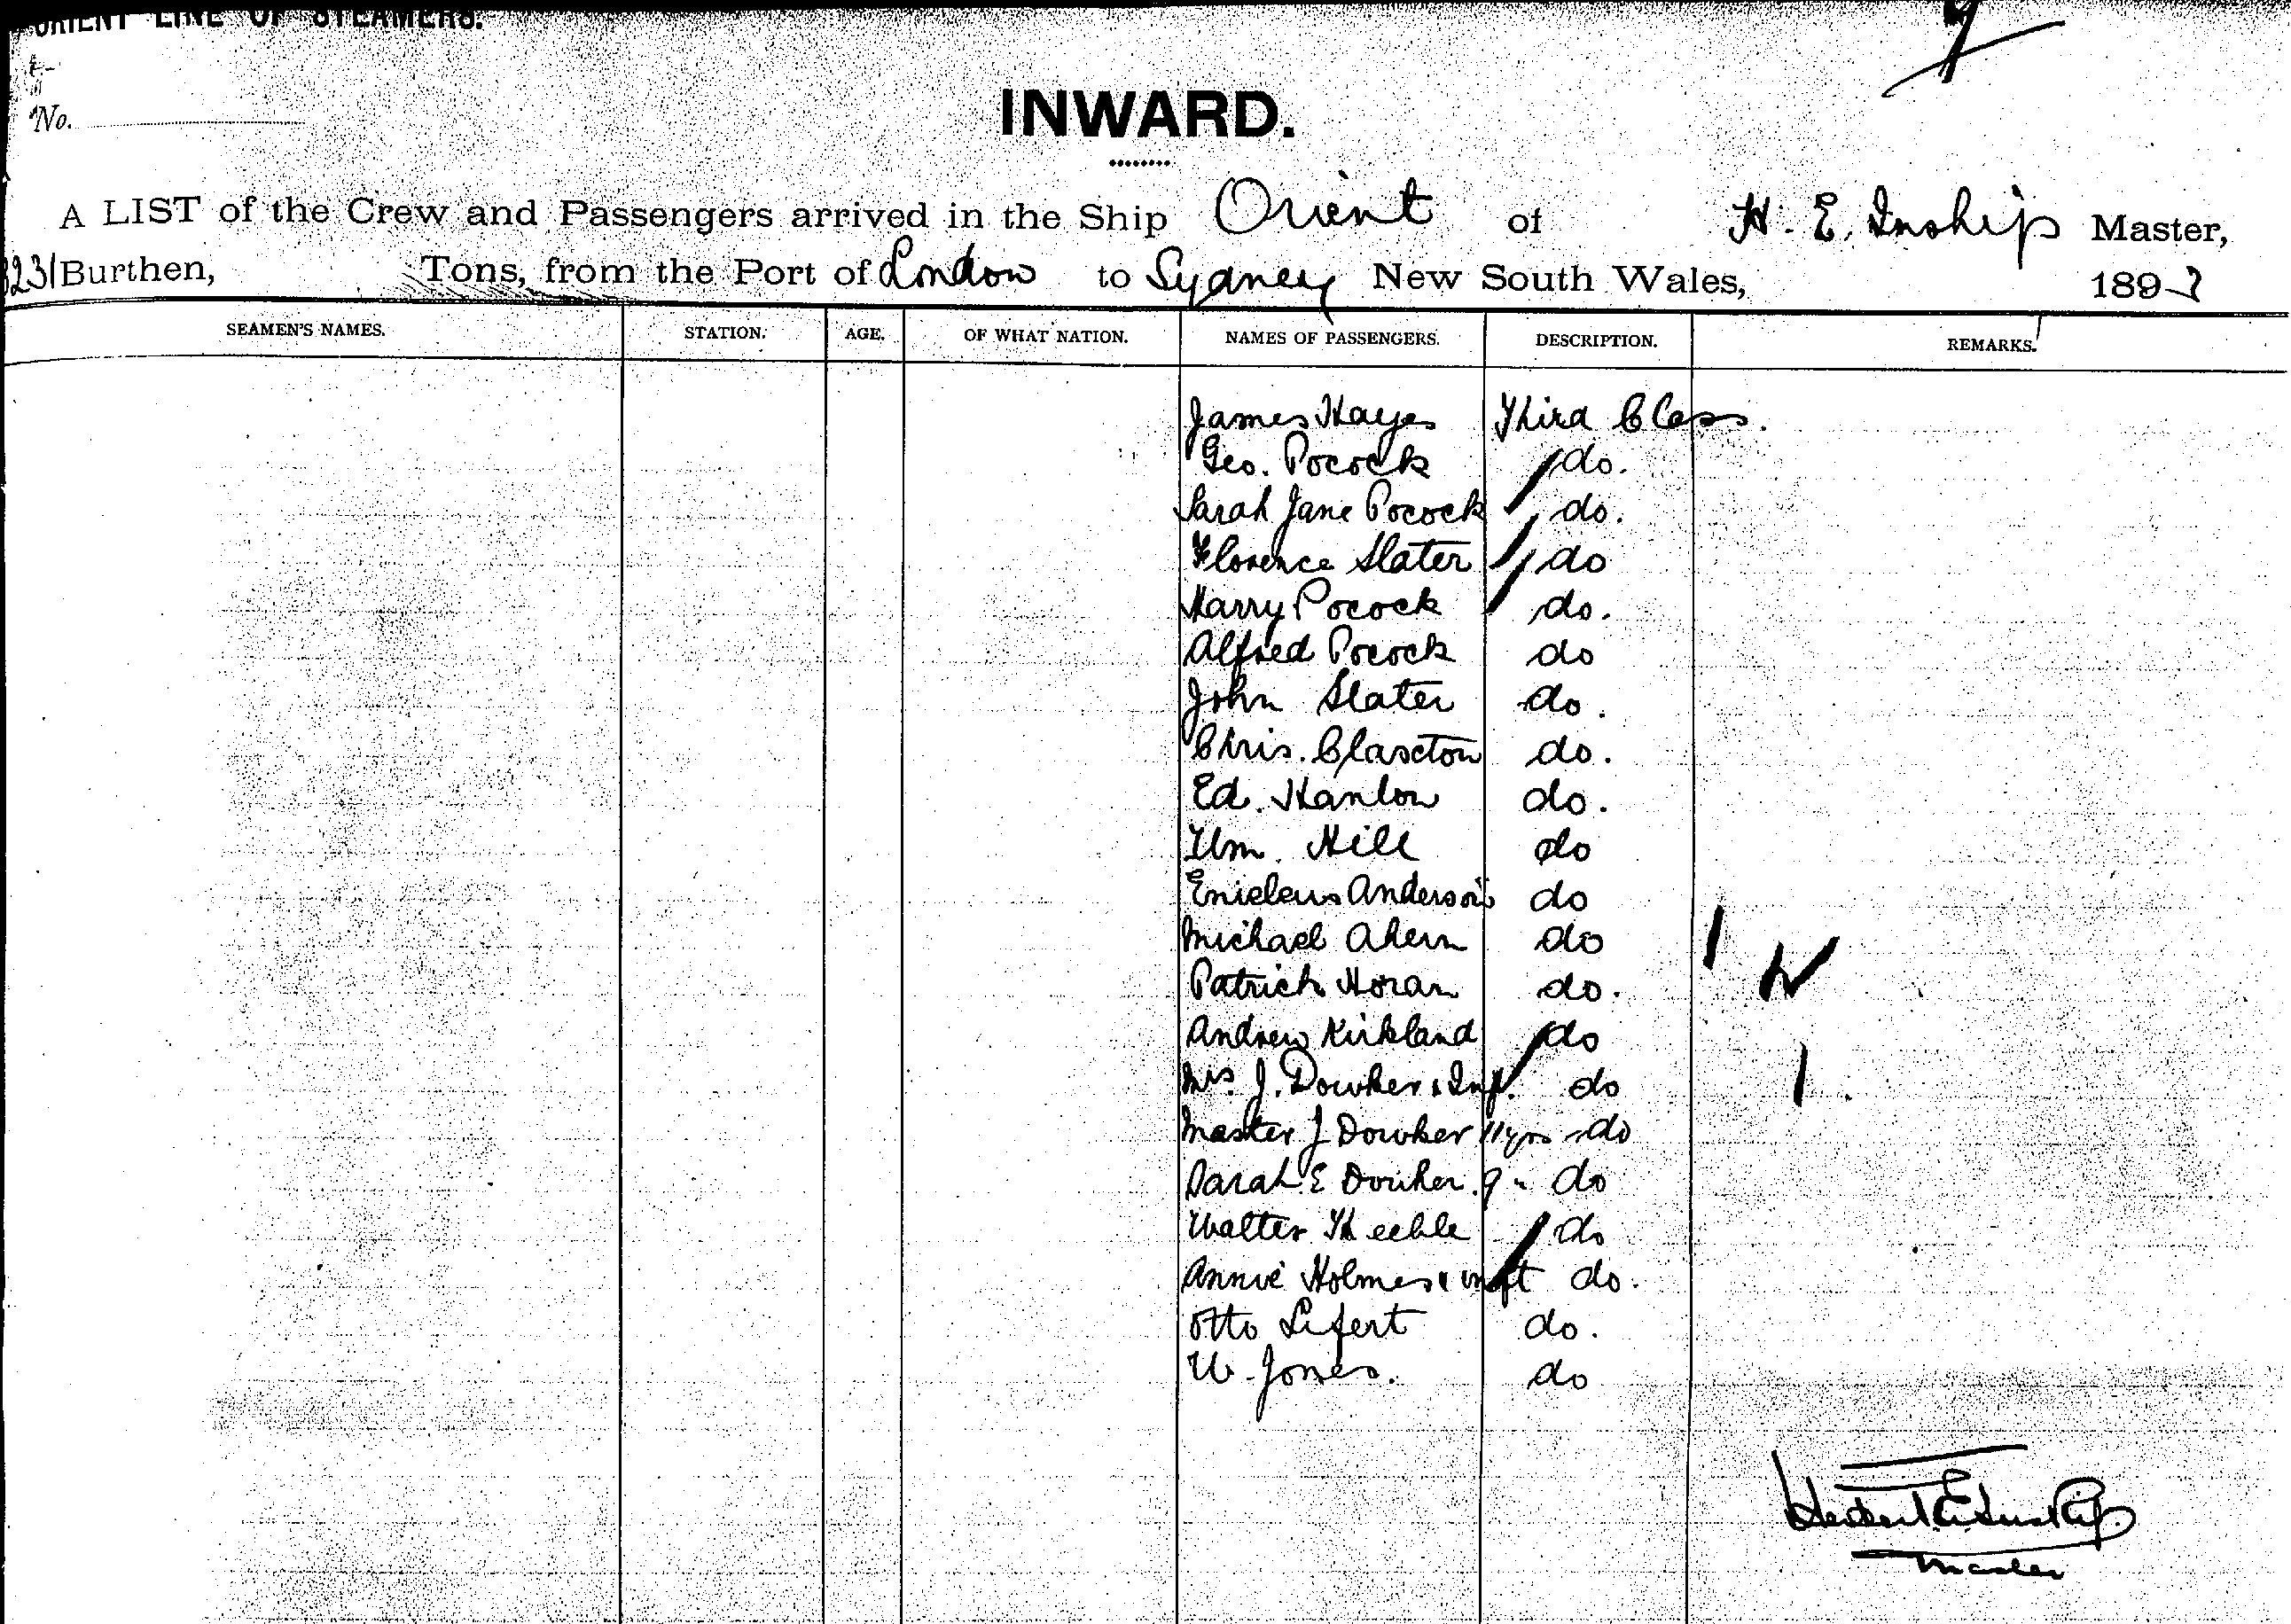 ORIENT LINE OF STEAMERS.
No.
INWARD.
A LIST of the Crew and Passengers arrived in the Ship Orient of H. E. Inskip Master,
3231 Burthen, Tons, from the Port of London to Sydney New South Wales, 1897
SEAMEN'S NAMES. STATION. AGE. OF WHAT NATION. NAMES OF PASSENGERS. DESCRIPTION. REMARKS.
James Hayes Third Class.
Geo. Pocock do.
Sarah Jane Pocock do.
Florence Slater do
Harry Pocock do.
Alfred Pocock do
John Slater do.
Chris. Claxton do.
Ed. Hanlon do.
Wm. Hill do
Anderson do
Michael Ahern do
Patrick Horan do.
Andrew Kirkland do
Mrs. J. Dowker & Inf. do
Master J Dowker 11 yrs do
Sarah E Dowker 9 " do
Walter Theeble do
Annie Holmes & inft do.
Otto Lifert do.
W. Jones. do
Herbert E. Inskip
Master